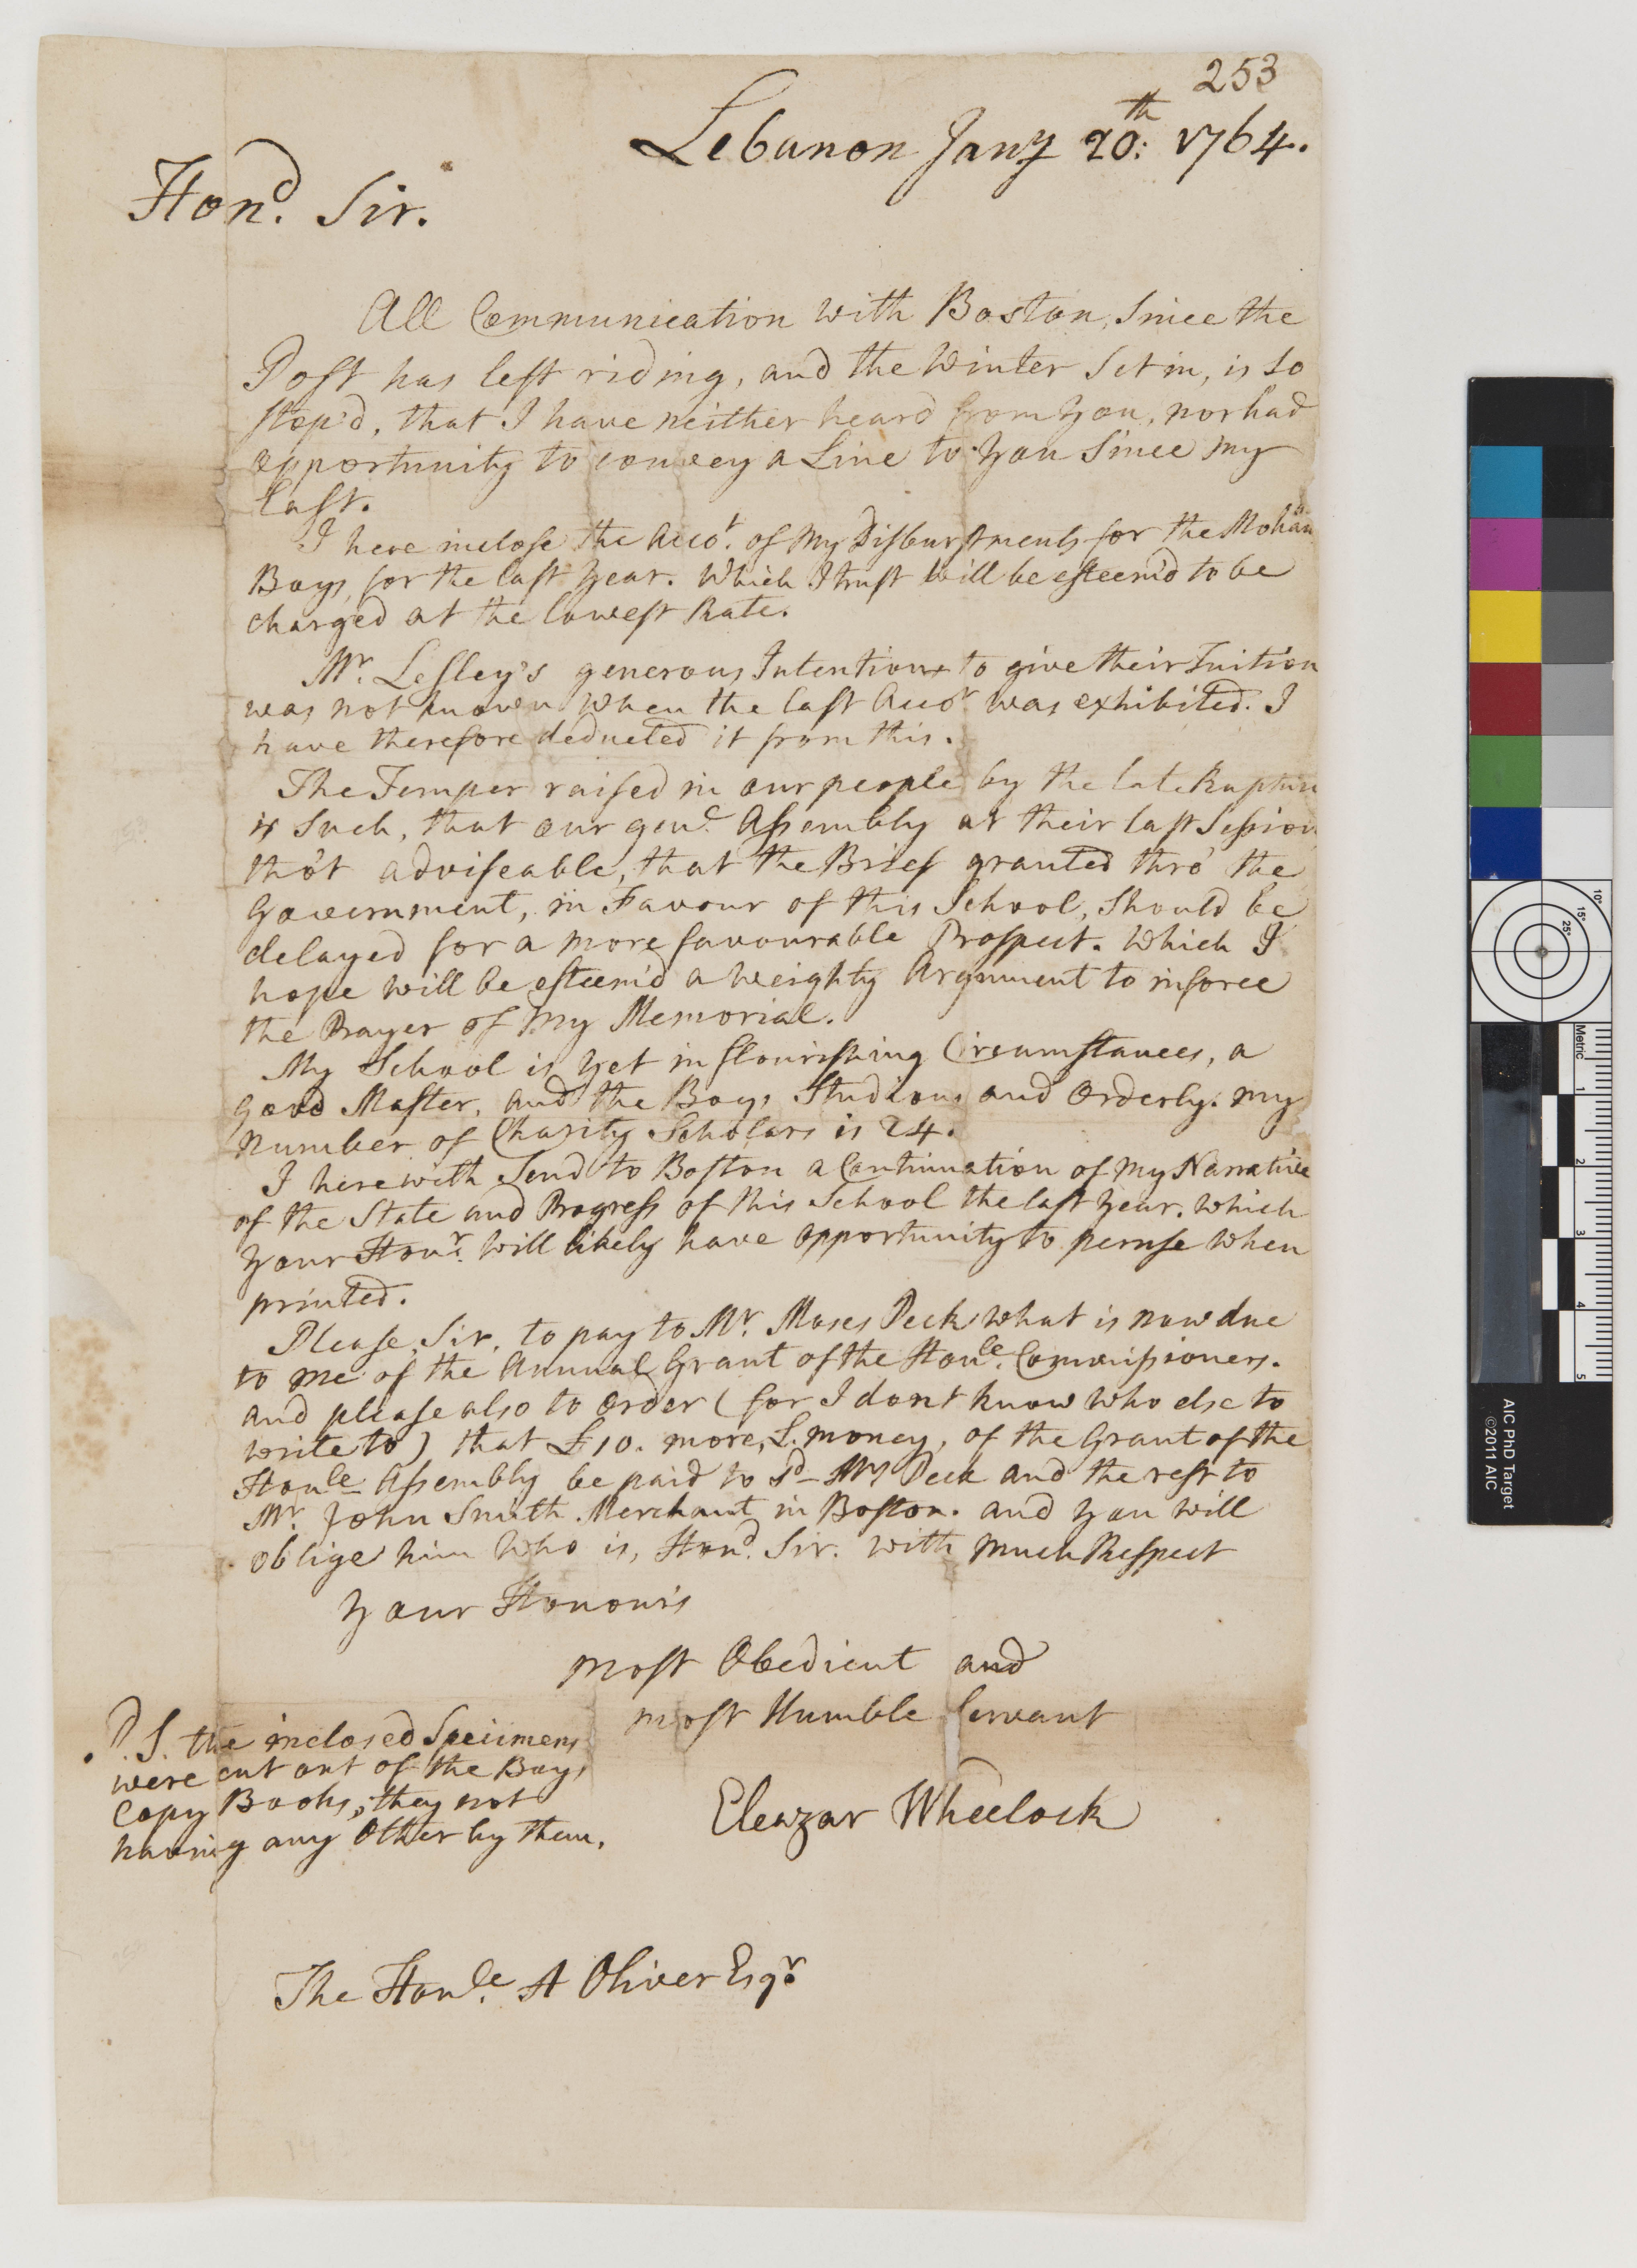 253
Lebanon Jany 20:th 1764.
Hond. Sir.
All Communication with Boston, Since the
Post has left riding, and the Winter Set in, is So
stop'd, that I have neither heard from you, nor had
opportunity to convey a Line to you Since my
last.
I here inclose the Acco.t of My Disburstments for the Mohaw
Boys, for the last year. Which I trust will be esteem'd to be
charged at the lowest Rate.
Mr. Lesley's generous Intention to give their Tuition
was not known when the last Accot was exhibited. I
have therefore deducted it from this.
The Temper raised in our people by the late Rupture
is Such, that our genl. Assembly at their last Session
tho't adviseable, that the Brief granted thro' the
Government, in Favour of this School, Should be
delayed for a more favourable Prospect. Which I
hope will be esteem'd a weighty Argument to inforce
the Prayer of my Memorial.
My School is yet in flourishing Circumstances, a
good Master, and the Boys Studious and Orderly. my
number of Charity Scholars is 24.
I herewith Send to Boston a Continuation of my Narrative
of the State and Progress of this School the last year. Which
your Honr. will likely have opportunity to peruse when
printed.
Please, Sir, to pay to Mr. Moses Peck what is now due
to me of the Annual Grant of the Honle. Commissioners.
and please also to Order (for I dont know who else to
write to) that £10. more, L. money, of the Grant of the
Honle Assembly be paid to sd Mr Peck and the rest to
Mr. John Smith Merchant in Boston. and you will
oblige him who is, Hond. Sir. with much Respect
your Honour's
most Obedient and
most Humble Servant
Eleazar Wheelock
P.S. the inclosed Specimens
were cut out of the Boys
Copy Books, they not
having any Other by them.
The Honle. A Oliver Esqr.
10°
15°
25°
Metric
1
2
3
4
5
AIC PhD Target
©2011 AIC